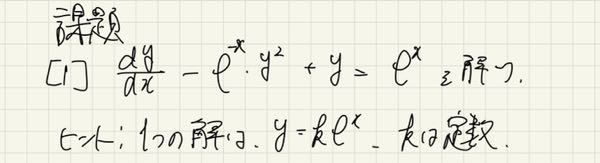 課題
[1] dy/dx - e^{-x}・y^2 + y = e^x を解け.
ヒント; 1つの解は. y = ke^x. kは定数.